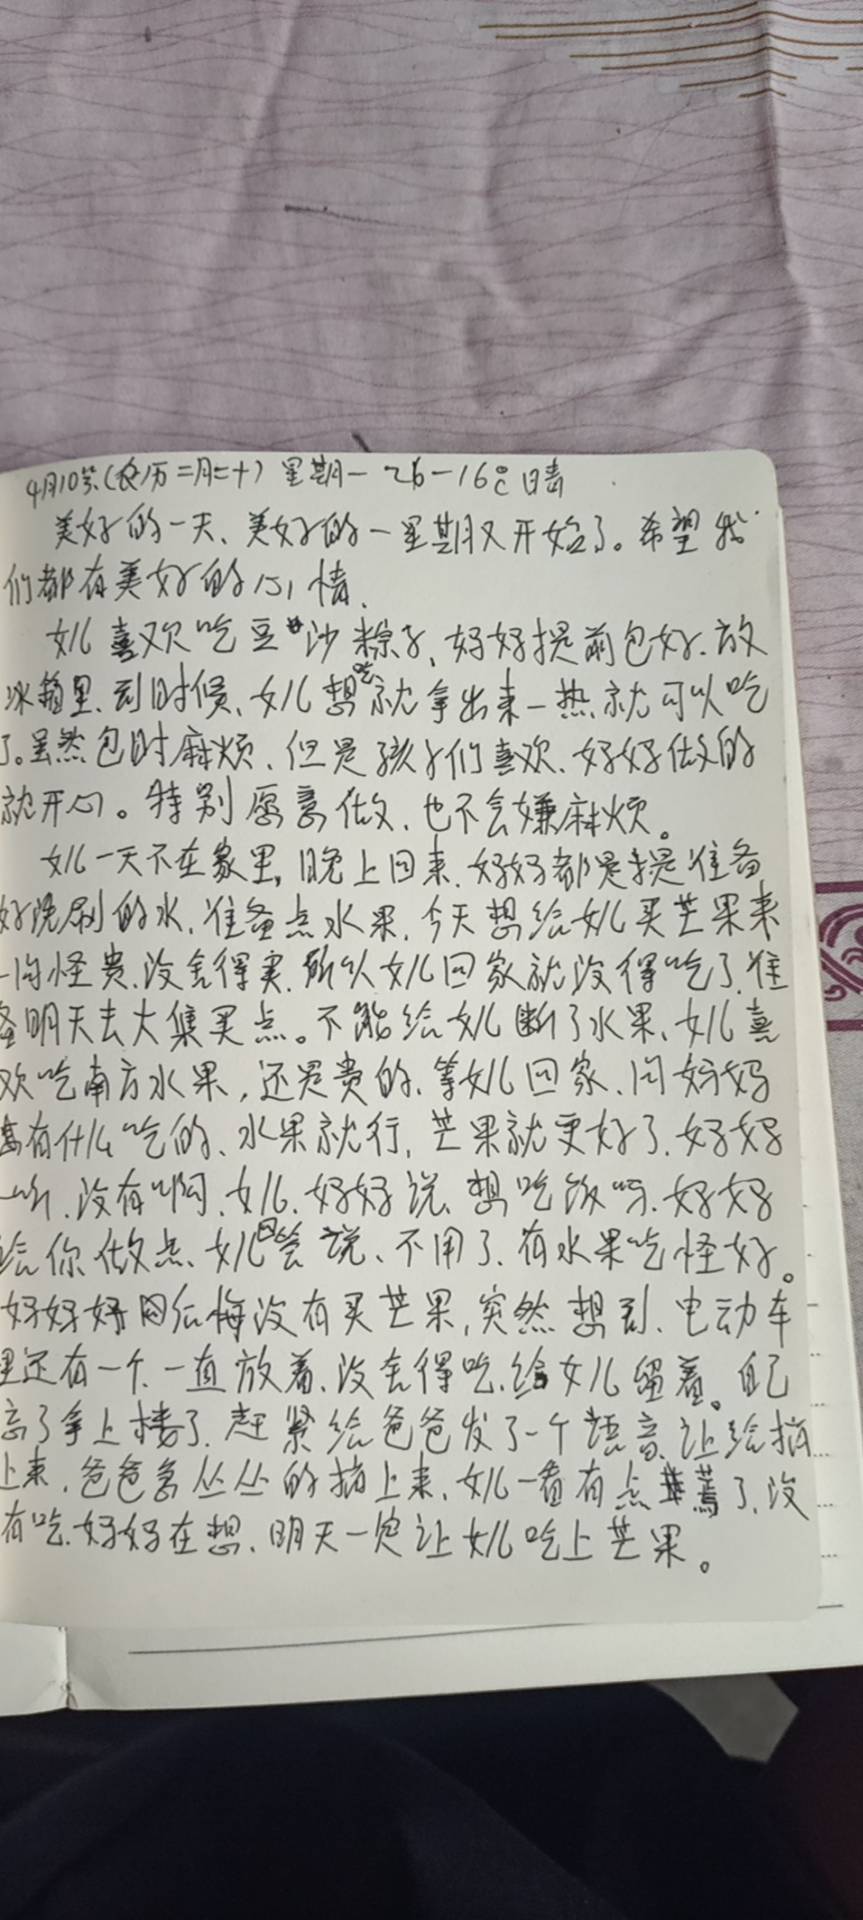 4月10号(农历二月二十) 星期一 26-16℃ 晴
美好的一天、美好的一星期又开始了。希望我
们都有美好的心情、
女儿喜欢吃豆沙粽子、妈妈提前包好.放
冰箱里、到时候、女儿想吃就拿出来一热就可以吃
了。虽然包时麻烦、但是孩子们喜欢、妈妈做的
就开心。特别愿意做、也不会嫌麻烦。
女儿一天不在家里,晚上回来、妈妈都是提准备
好洗刷的水、准备点水果、今天想给女儿买芒果来
一问怪贵、没舍得买、所以女儿回家就没得吃了、准
备明天去大集买点。不能给女儿断了水果、女儿喜
欢吃南方水果,还是贵的、等女儿回家、问妈妈
有什么吃的、水果就行,芒果就更好了、妈妈
一听、没有啊、女儿、妈妈说、想吃饭吗、妈妈
给你做点、女儿回答说、不用了、有水果吃怪好。
妈妈后悔没有买芒果,突然想到、电动车
里还有一个、一直放着、没舍得吃、给女儿留着。自己
忘了拿上楼了、赶紧给爸爸发了一个语音、让给捎
上来、爸爸急丛丛的捎上来、女儿一看有点蔫了、没
有吃、妈妈在想、明天一定让女儿吃上芒果。